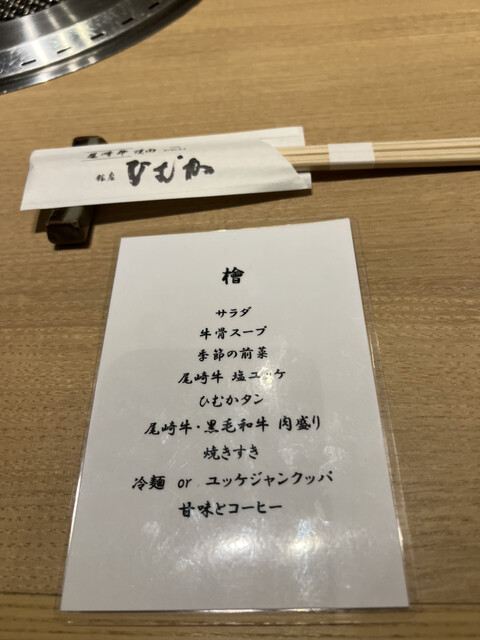 尾崎牛 焼肉
銀座 ひむか
檜
サラダ
牛骨スープ
季節の前菜
尾崎牛 塩ユッケ
ひむかタン
尾崎牛・黒毛和牛 肉盛り
焼きすき
冷麺 or ユッケジャンクッパ
甘味とコーヒー